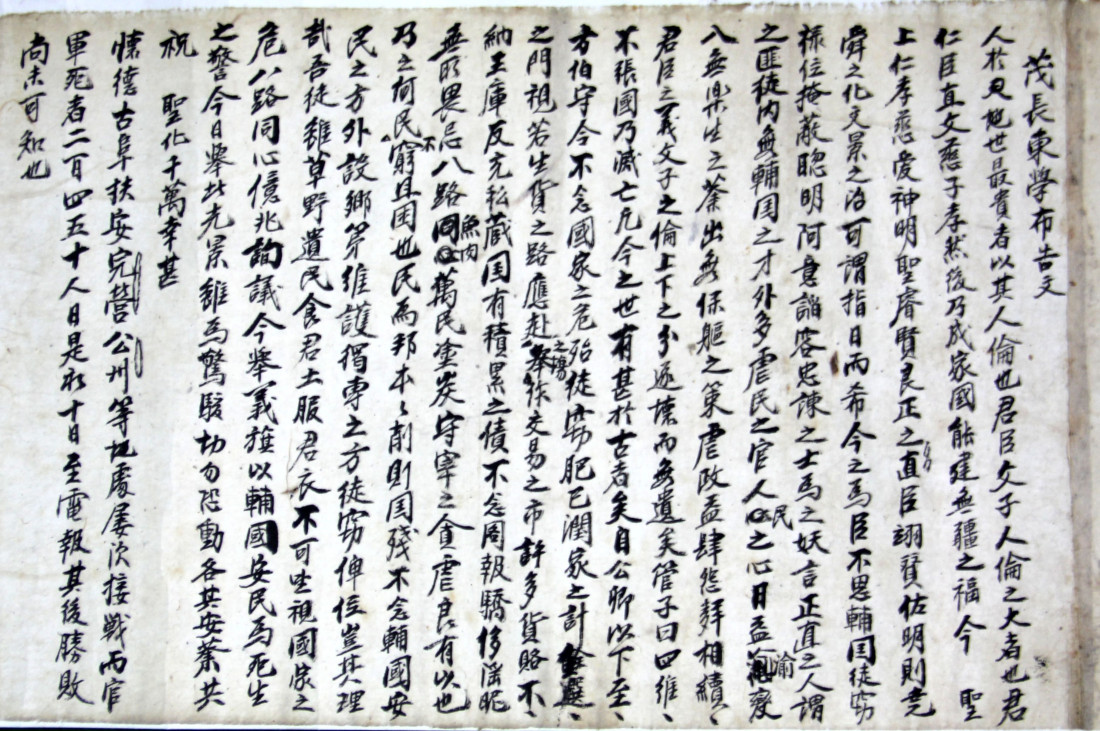 茂長東学布告文
人於天地世最貴者以其人倫也君臣父子人倫之大者也君
仁臣直父慈子孝然後乃成家國能建無疆之福今 聖
上仁孝慈愛神明聖睿賢良正之直臣翊賛佐明則尭
舜之化文景之治可謂指日而希今之為臣不思輔国徒窃
禄位掩蔽聰明阿意諂容忠諫之士為之妖言正直之人謂
之匪徒内無輔国之才外多虐民之官人民之心日益渝変
八無楽生之業出無保軀之策虐政益肆怨声相續〻
君臣之義父子之倫上下之分逐壊而無遺矣管子曰四維〻
不張國乃滅亡凡今之世有甚於古者矣自公卿以下至〻
方伯守令不念國家之危殆徒窃肥己潤家之計銓選〻
之門視若生貨之路應赴之場擧作交易之市許多貨賂不〻
納王庫反充私蔵国有積累之債不念圖報驕侈淫昵
無所畏忌八路魚肉萬民塗炭守宰之貪虐良有以也
乃之何民不窮且困也民為邦本〻削則国残不念輔國安
民之方外設郷第維護獨専之方徒窃俸位豈其理
哉吾徒雖草野遺民食君土服君衣不可坐視國家之
危八路同心億兆詢議今擧義旗以輔國安民為死生
之警今日擧此光景雖為驚駭切勿恐動各其安業共
祝 聖化千萬幸甚
懐德古阜扶安完營公州等地處屢次接戦而官
軍死者二百四五十人日是初十日至電報其後勝敗
尚未可知也